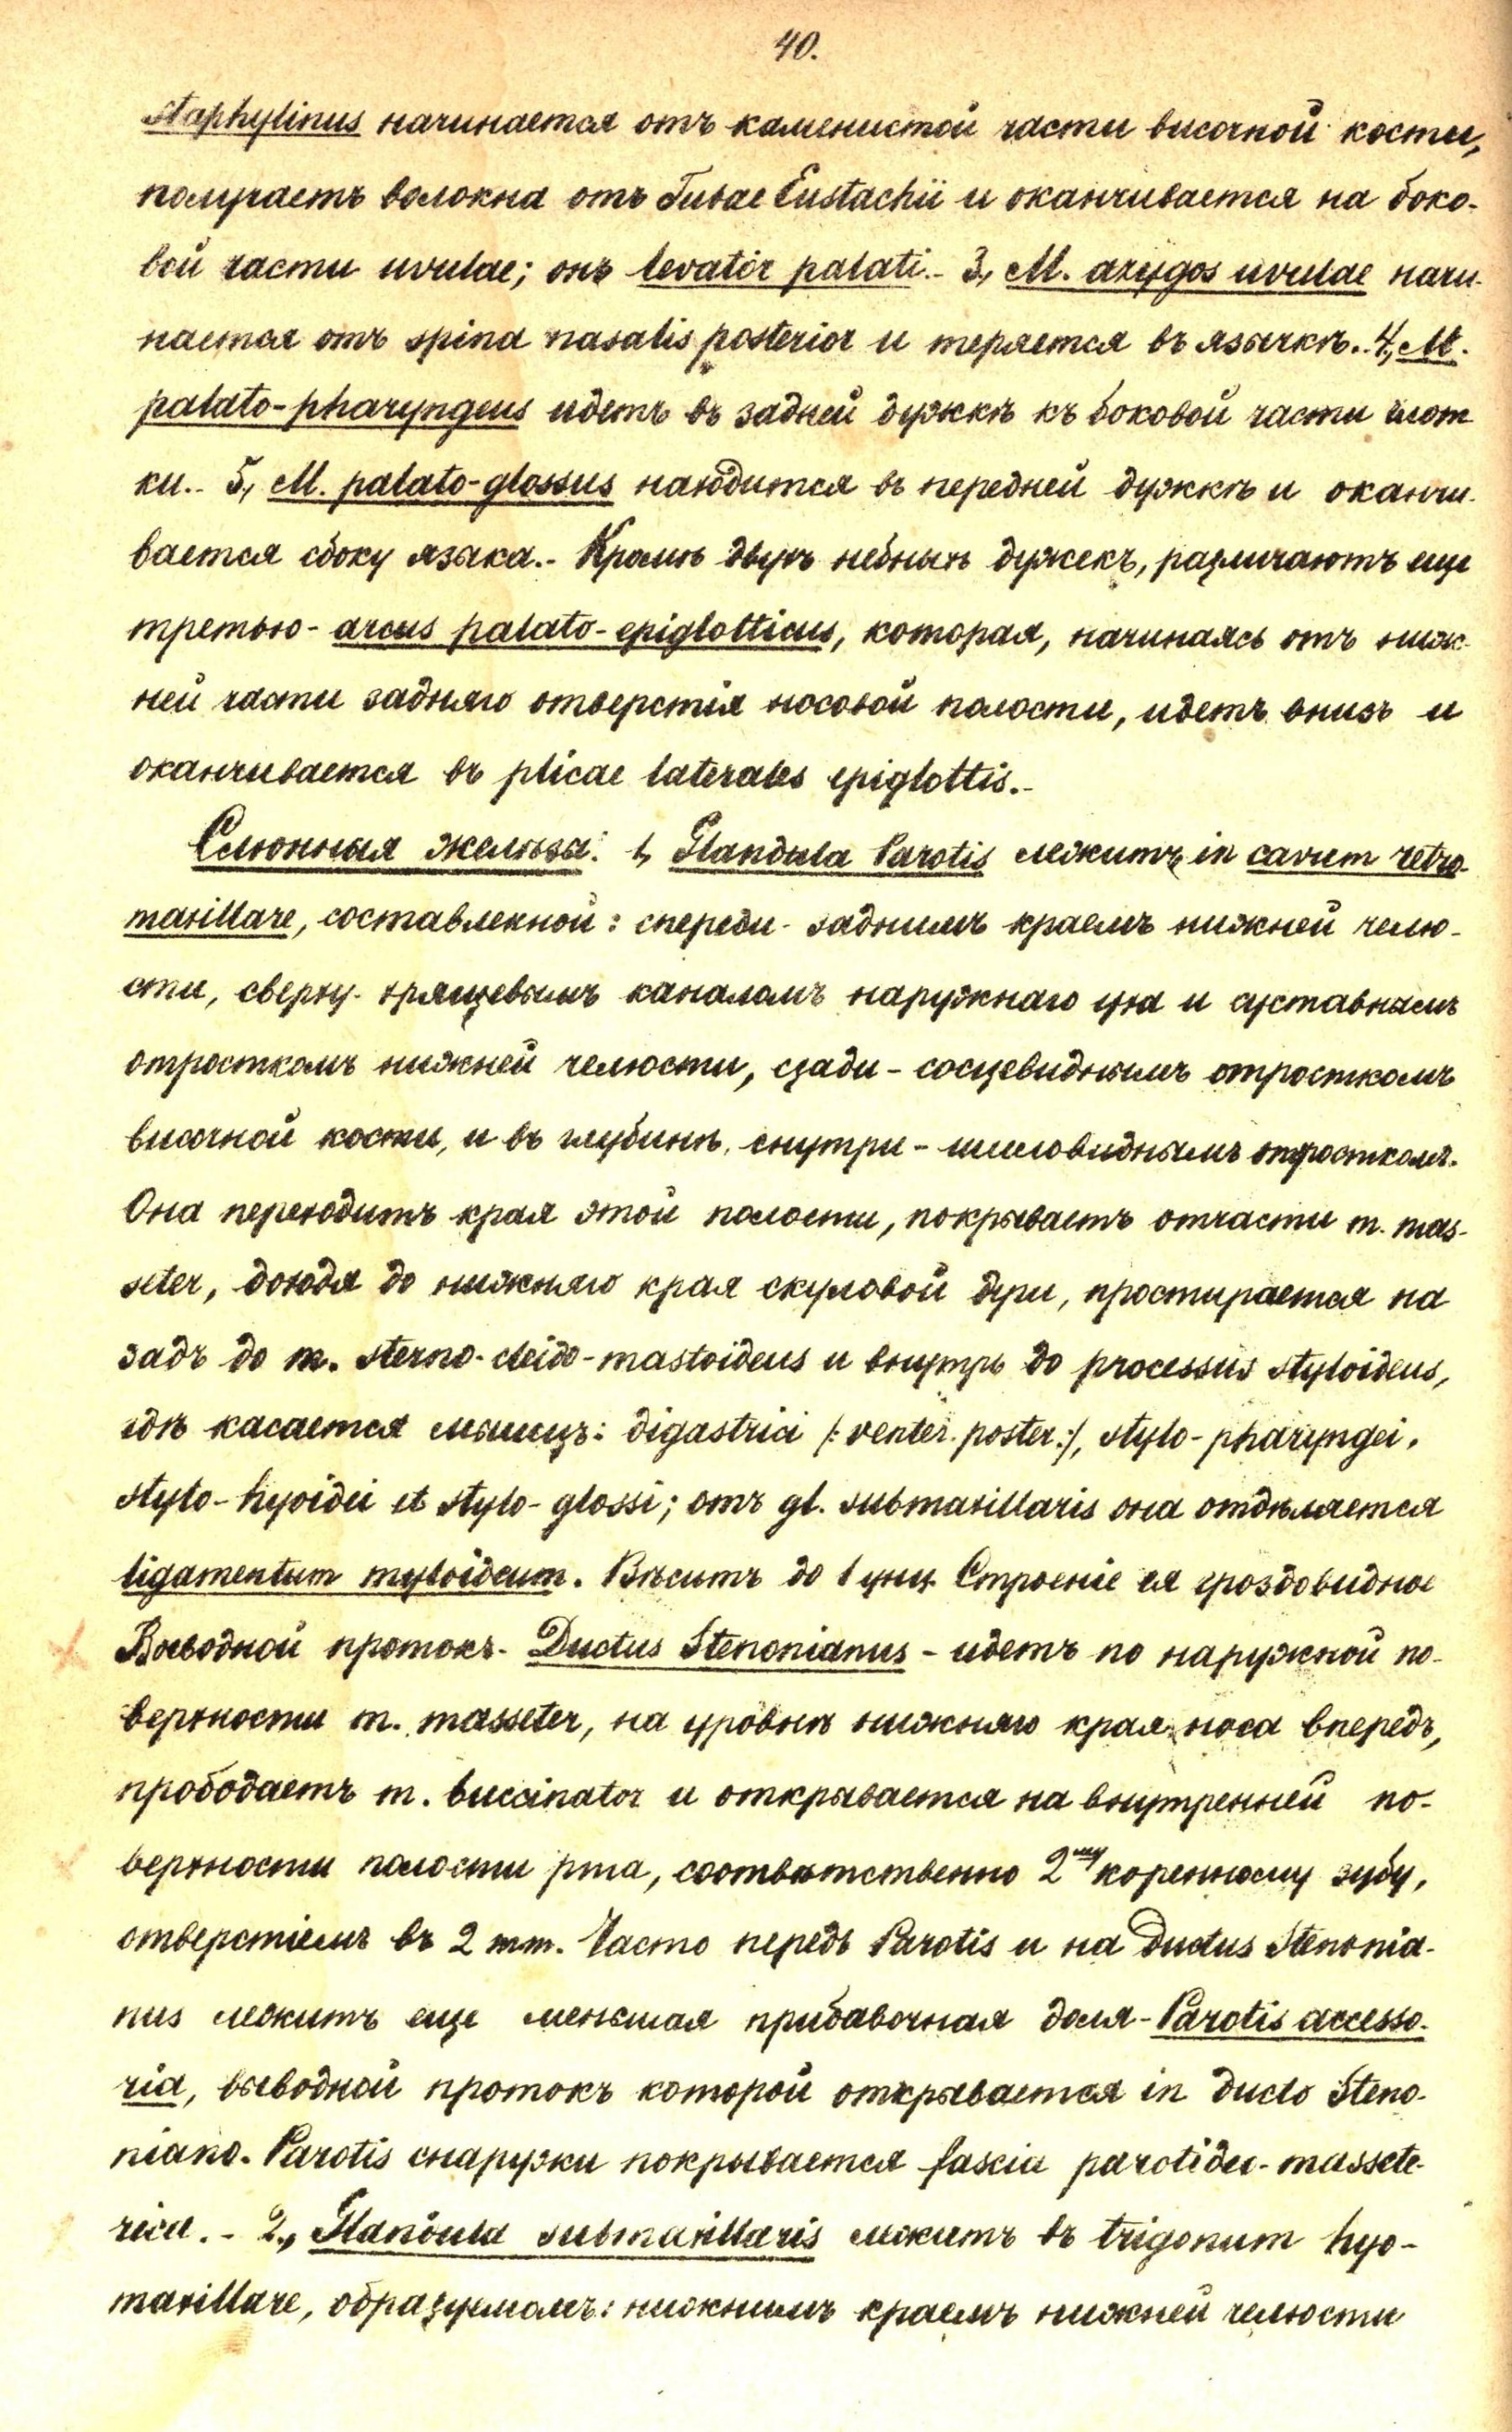 40.
staphylinus начинается отъ каменистой части височной кости,
получаетъ волокна отъ Tubae Eustachii и оканчивается на боко-
вой части uvulae; онъ levator palati.- 3, M. azygos uvulae начи-
нается отъ spina nasalis posterior и теряется въ язычкѣ.- 4, M.
palato-pharyngeus идетъ въ задней дужкѣ къ боковой части глот
ки.- 5, M. palato-glossus находится въ передней дужкѣ и оканчи-
вается сбоку языка.- Кромѣ двухъ небныхъ дужекъ, различаютъ еще
третью- arcus palato-epiglotticus, которая, начинаясь отъ ниж-
ней части задняго отверстія носовой полости, идетъ внизъ и
оканчивается въ plicae laterales epiglottis.-
Слюнныя железы: 1, Glandula Parotis лежитъ in cavum retro-
maxillare, составленной: спереди- заднимъ краемъ нижней челю-
сти, сверху- хрящевымъ каналомъ наружнаго уха и суставнымъ
отросткомъ нижней челюсти, сзади- сосцевиднымъ отросткомъ
височной кости, и въ глубинѣ, снутри- шиловиднымъ отросткомъ.
Она переходитъ края этой полости, покрываетъ отчасти m. mas-
seter, доходя до нижняго края скуловой дуги, простирается на
задъ до m. sterno-cleido-mastoideus и внутрь до processus styloideus,
гдѣ касается мышцъ: digastrici /: venter. poster.:/, stylo-pharyngei,
stylo-hyoidei et stylo-glossi; отъ gl. submaxillaris она отдѣляется
ligamentum myloideum. Вѣситъ до 1 унц. Строеніе ея гроздовидное
Выводной протокъ- Ductus Stenonianus - идетъ по наружной по-
верхности m. masseter, на уровнѣ нижняго края носа впередъ,
прободаетъ m. buccinator и открывается на внутренней по-
верхности полости рта, соотвѣтственно 2му коренному зубу,
отверстіемъ въ 2 mm. Часто передъ Parotis и на Ductus Stenonia-
nus лежитъ еще меньшая прибавочная доля- Parotis accesso-
ria, выводной протокъ которой открывается in ducto Steno-
niano. Parotis снаружи покрывается fascia parotideo-massete-
rica.- 2., Glandula submaxillaris лежитъ въ trigonum hyo-
maxillare, образуемомъ: нижнимъ краемъ нижней челюсти